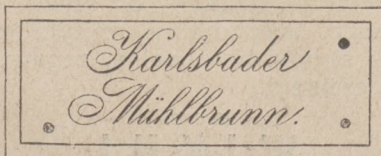 Karlsbader
Mühlbrunn.